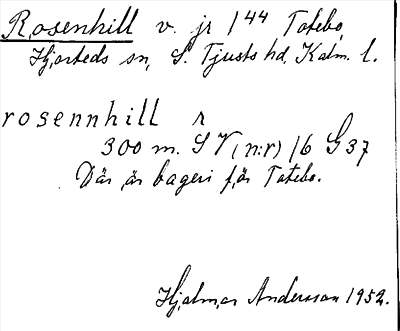 Rosenhill v. jr 1⁴⁴ Totebo,
Hjorteds sn, S. Tjusts hd, Kalm. l.
rosennhill r
300 m. SV (n:r) 16 G37
Där är bageri för Totebo.
Hjalmar Andersson 1952.